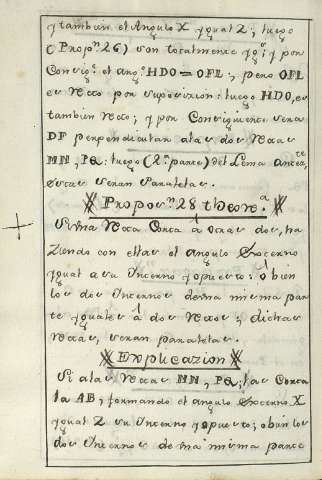 y tambien el Angulo X ygual Z; luego
(Propon. 26) son totalmente yg.s y por
Consig.te el ang.o HDO = OFL; pero OFL
es recto por suposixion: luego HDO, es
tambien recto; y por Consiguiente sera
DF perpendicular alas dos rectas
MN, PQ: luego (2.a parte) del Lema antec.te,
estas seran Paralelas.
Propor.n 28 theore.a
Si una recta Corta â otras dos, ha
ziendo con ellas el angulo Externo
ygual a su Interno yopuesto: ô bien
los dos Internos de una misma par
te yguales â dos rectos; dichas
rectas, seran paralelas.
Explicazion
Si alas rectas MN, PQ; las Corta
la AB, formando el angulo Externo X
ygual Z su Interno yopuesto; obien los
dos Internos de una misma parte